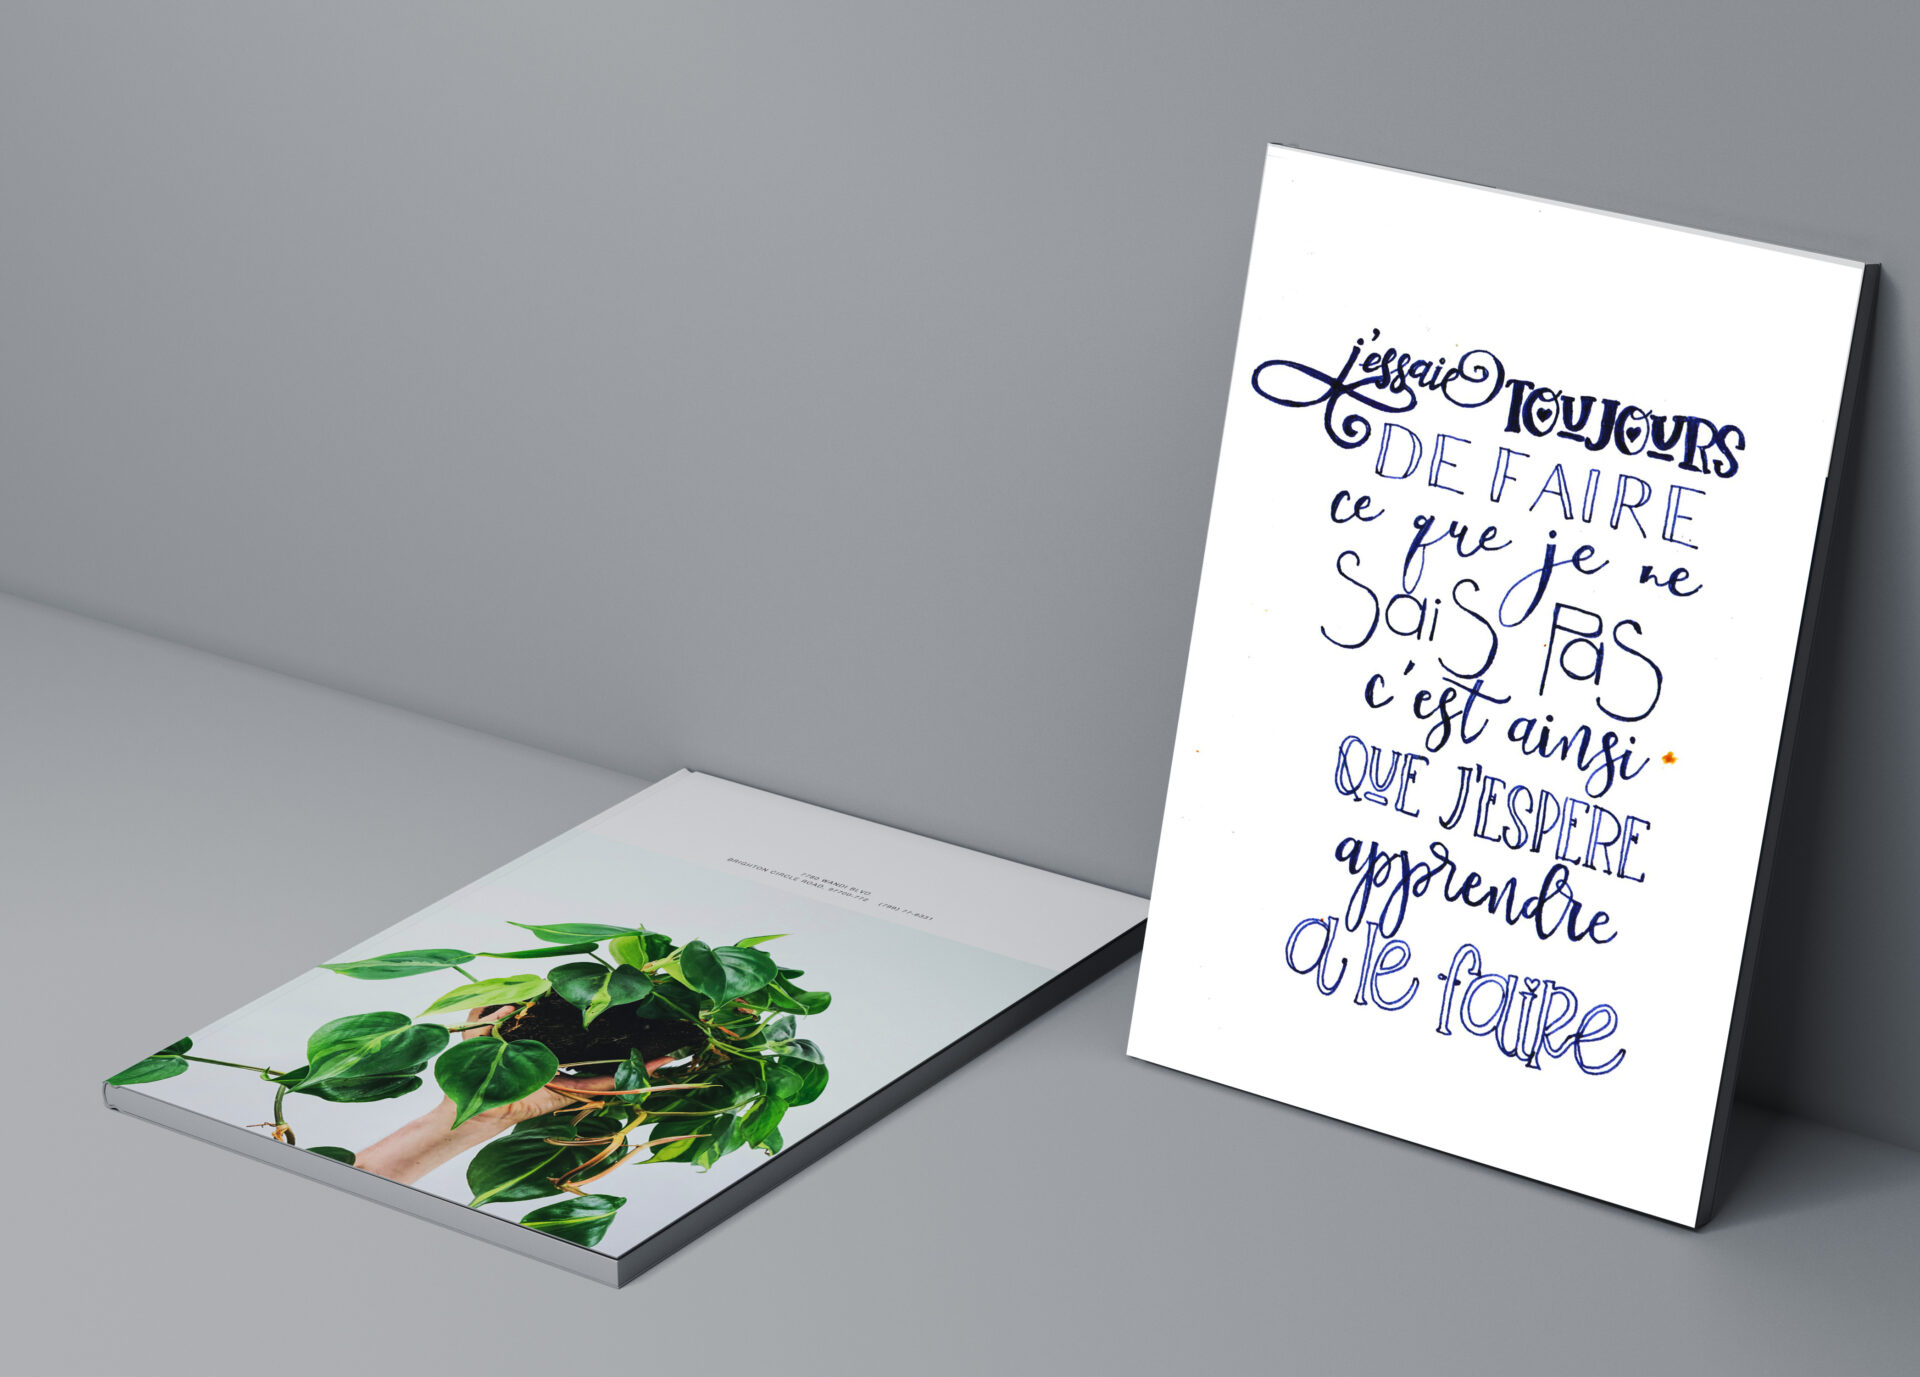 j'essaie TOUJOURS
DE FAIRE
ce que je ne
SaiS PaS
c'est ainsi
QUE J'ESPERE
apprendre
a le faire
7780 WANDI BLVD
BRIGHTON CIRCLE ROAD, 97700-772 (799) 77-9331